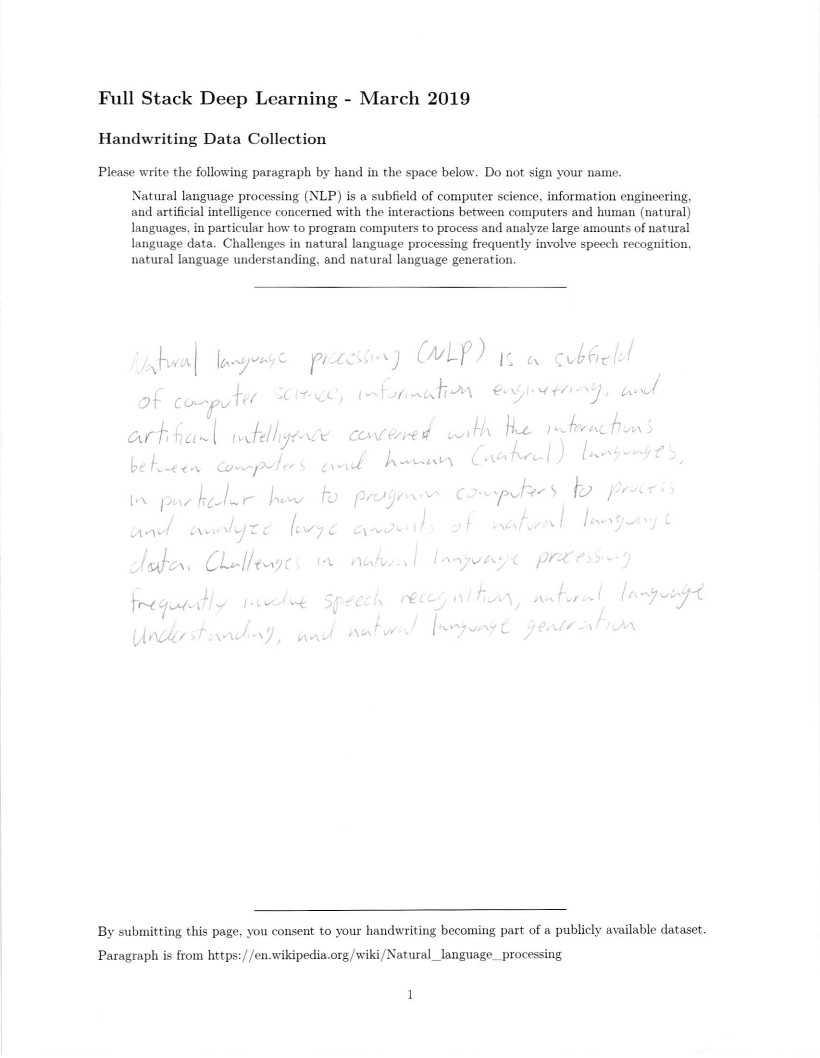 Full Stack Deep Learning - March 2019
Handwriting Data Collection
Please write the following paragraph by hand in the space below. Do not sign your name.
Natural language processing (NLP) is a subfield of computer science, information engineering,
and artificial intelligence concerned with the interactions between computers and human (natural)
languages, in particular how to program computers to process and analyze large amounts of natural
language data. Challenges in natural language processing frequently involve speech recognition,
natural language understanding, and natural language generation.
Natural language processing (NLP) is a subfield
of computer science, information engineering, and
artificial intelligence concerned with the interactions
between computers and human (natural) languages,
in particular how to program computers to process
and analyze large amounts of natural language
data. Challenges in natural language processing
frequently involve speech recognition, natural language
Understanding, and natural language generation
By submitting this page, you consent to your handwriting becoming part of a publicly available dataset.
Paragraph is from https://en.wikipedia.org/wiki/Natural_language_processing
1